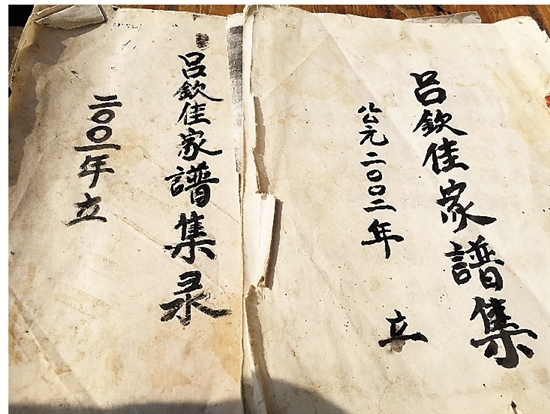 吕钦佳家譜集
公元二〇〇二年 立
吕钦佳家譜集录
二〇〇一年立